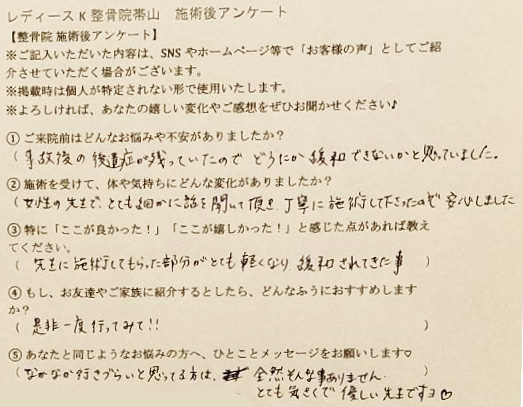 レディースK整骨院帯山　施術後アンケート
【整骨院 施術後アンケート】
※ご記入いただいた内容は、SNSやホームページ等で「お客様の声」としてご紹
介させていただく場合がございます。
※掲載時は個人が特定されない形で使用いたします。
※よろしければ、あなたの嬉しい変化やご感想をぜひお聞かせください♪
① ご来院前はどんなお悩みや不安がありましたか？
（事故後の後遺症が残っていたので どうにか 緩和できないかと思っていました。
② 施術を受けて、体や気持ちにどんな変化がありましたか？
（女性の先生で、とても細かに話を聞いて頂き、丁寧に施術して下さったので 安心しました
③ 特に「ここが良かった！」「ここが嬉しかった！」と感じた点があれば教え
てください。
（ 先生に施術してもらった部分がとても軽くなり 緩和されてきた事 ）
④ もし、お友達やご家族に紹介するとしたら、どんなふうにおすすめします
か？
（ 是非一度行ってみて!! ）
⑤ あなたと同じようなお悩みの方へ、ひとことメッセージをお願いします♡
（なかなか行きづらいと思ってる方は、全然そんな事ありません。
とても気さくで優しい先生ですヨ♡